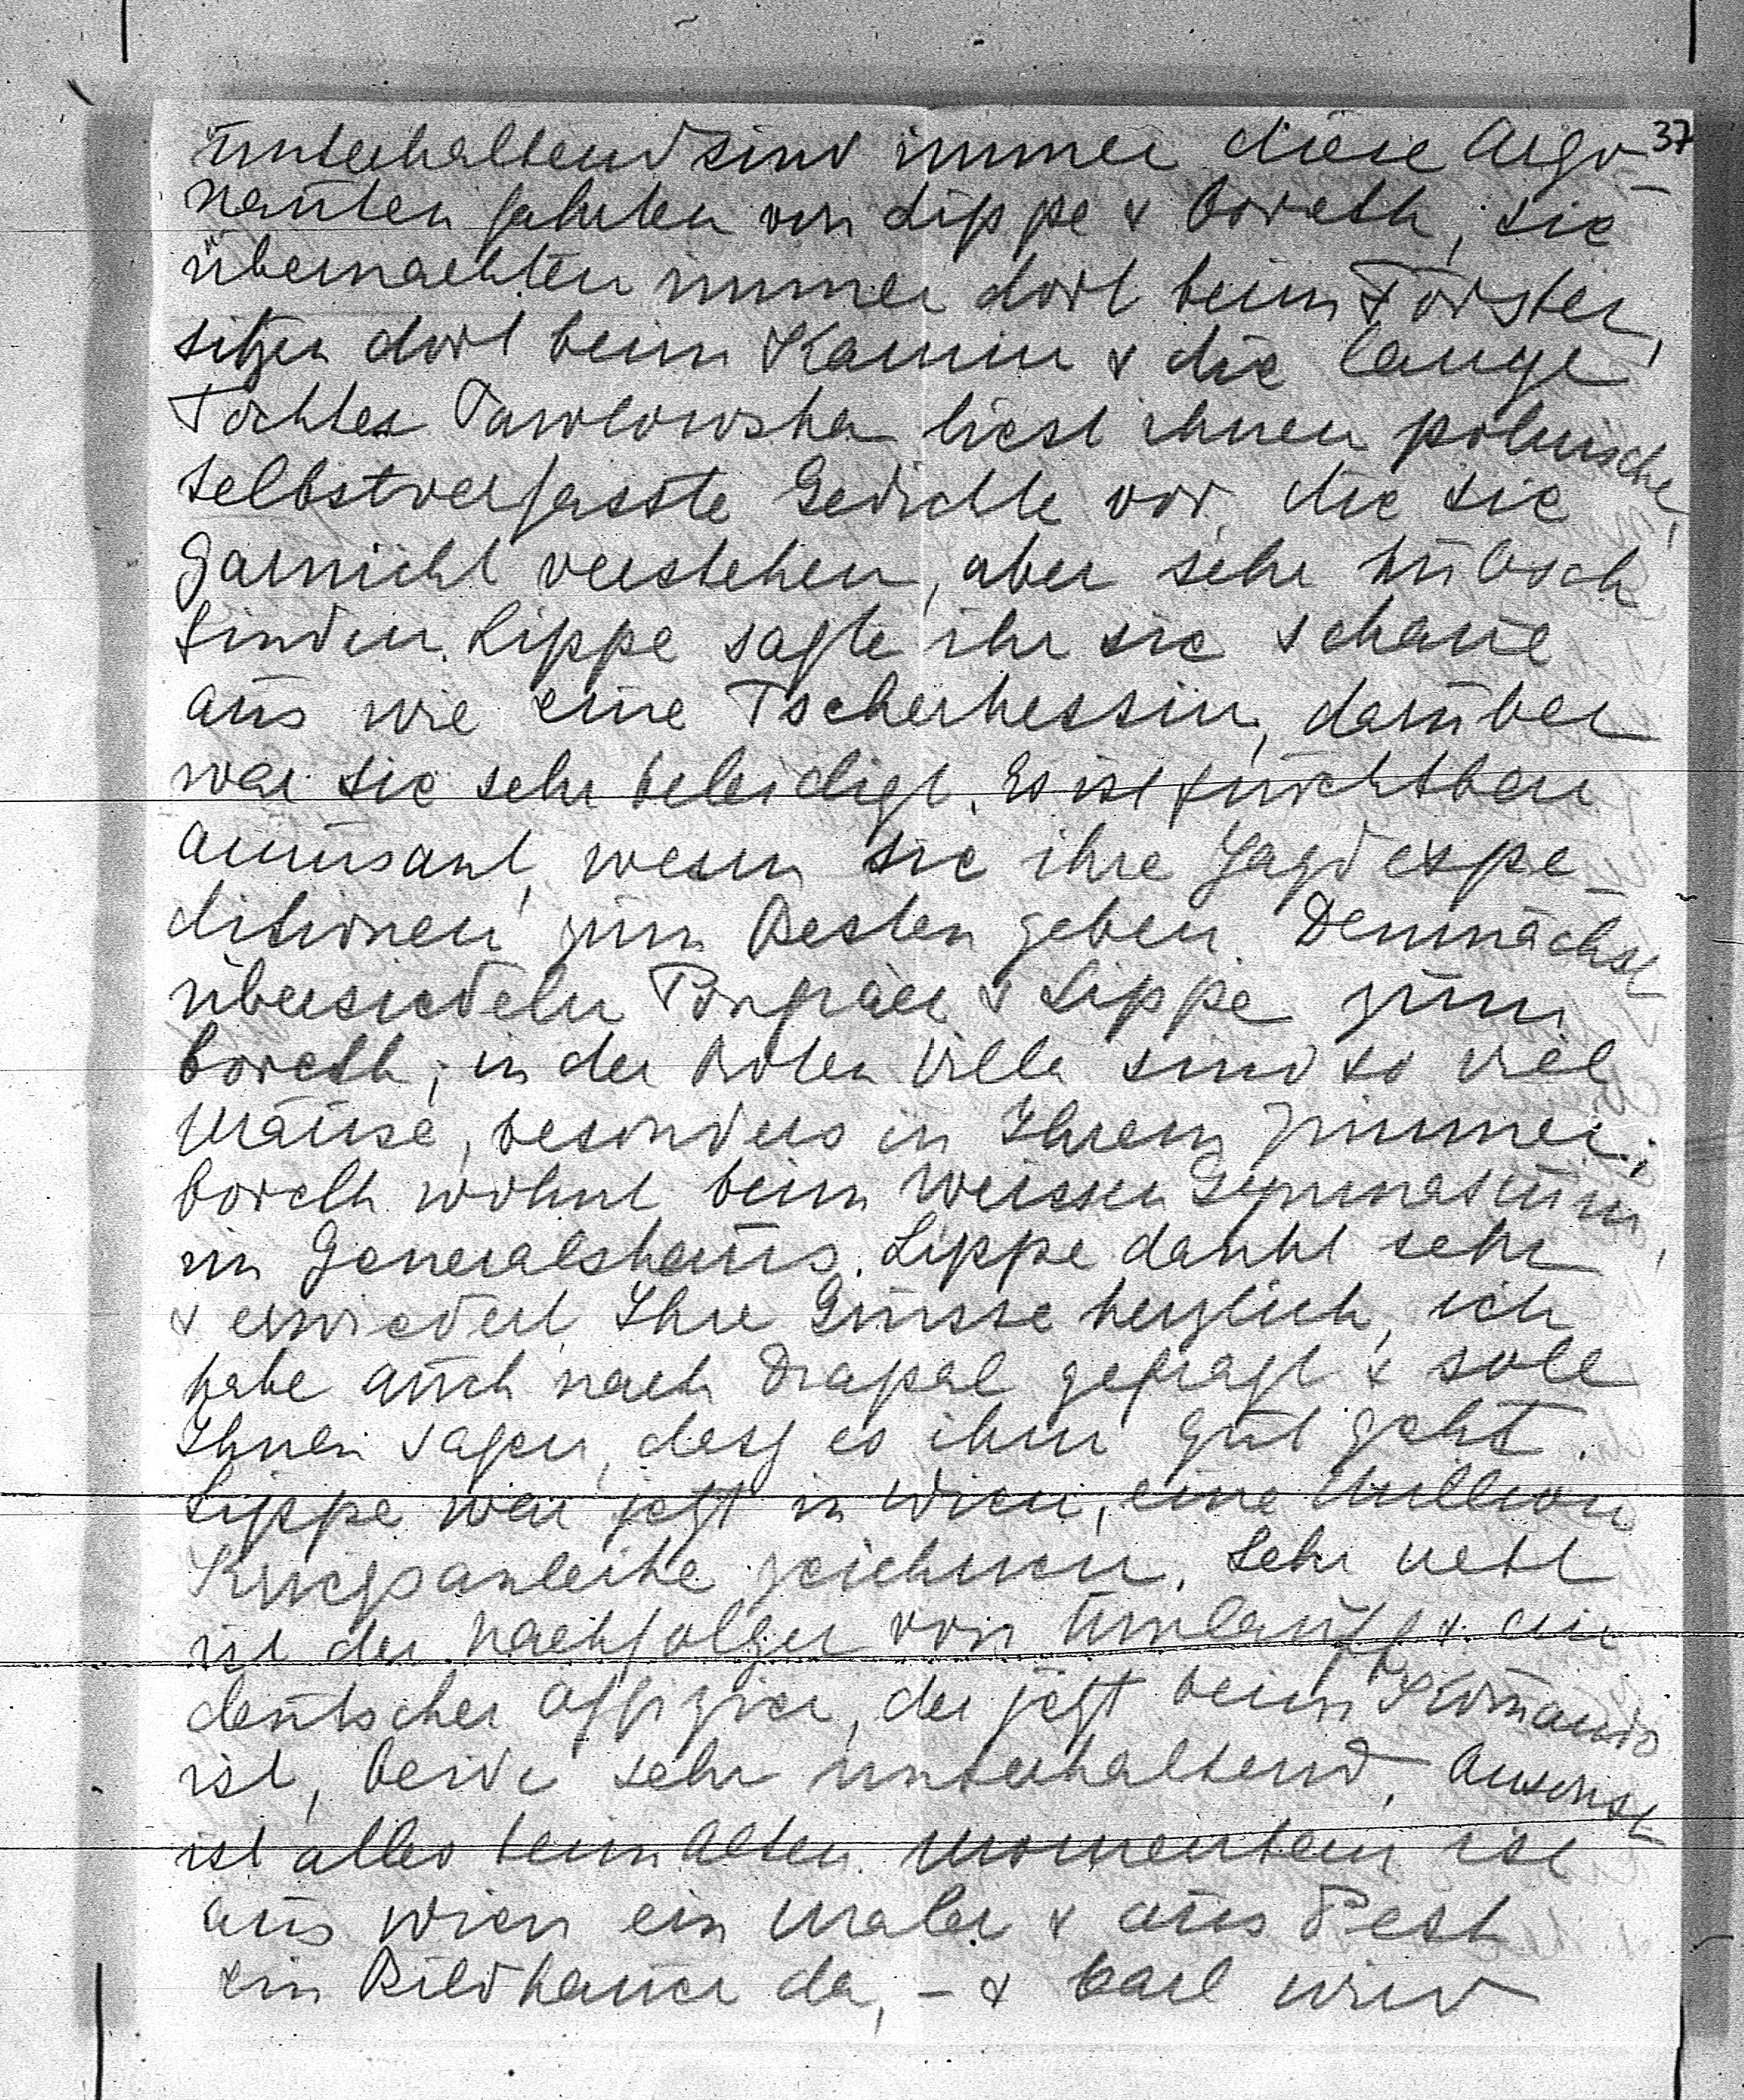 unterhaltend sind immer diese Argo- 37
nauten fahrten von Lippe & Boreth, sie
übernachten immer dort beim Förster,
sitzen dort beim Kamin & die lange
Tochter Pawlowska liest ihnen polnische,
selbstverfasste Gedichte vor, die sie
garnicht verstehen, aber sehr hübsch
finden. Lippe sagte ihr sie schaue
aus wie eine Tscherkessin, darüber
war sie sehr beleidigt. Es ist furchtbar
amüsant, wenn sie ihre Jagdexpe-
ditionen zum Besten geben. Demnächst
übersiedeln & Lippe zum
Boreth; in der Roten Villa sind so viel
Mäuse, besonders in Ihrem Zimmer;
Boreth wohnt beim Weissen Gymnasium,
im Generalshaus. Lippe dankt sehr
& erwiedert Ihre Grüsse herzlich, ich
habe auch nach Drapal gefragt & soll
Ihnen sagen, dass es ihm gut geht.
Lippe war jetzt in Wien, eine Million
Kriegsanleihe zeichnen. Sehr nett
ist der Nachfolger von Umlauff & ein
deutscher Offizier, der jetzt beim Komando
ist, beide sehr unterhaltend. Ansonst
ist alles beim Alten. Momentan ist
aus Wien ein Maler & aus Pest
ein Bildhauer da, - & Carl wird